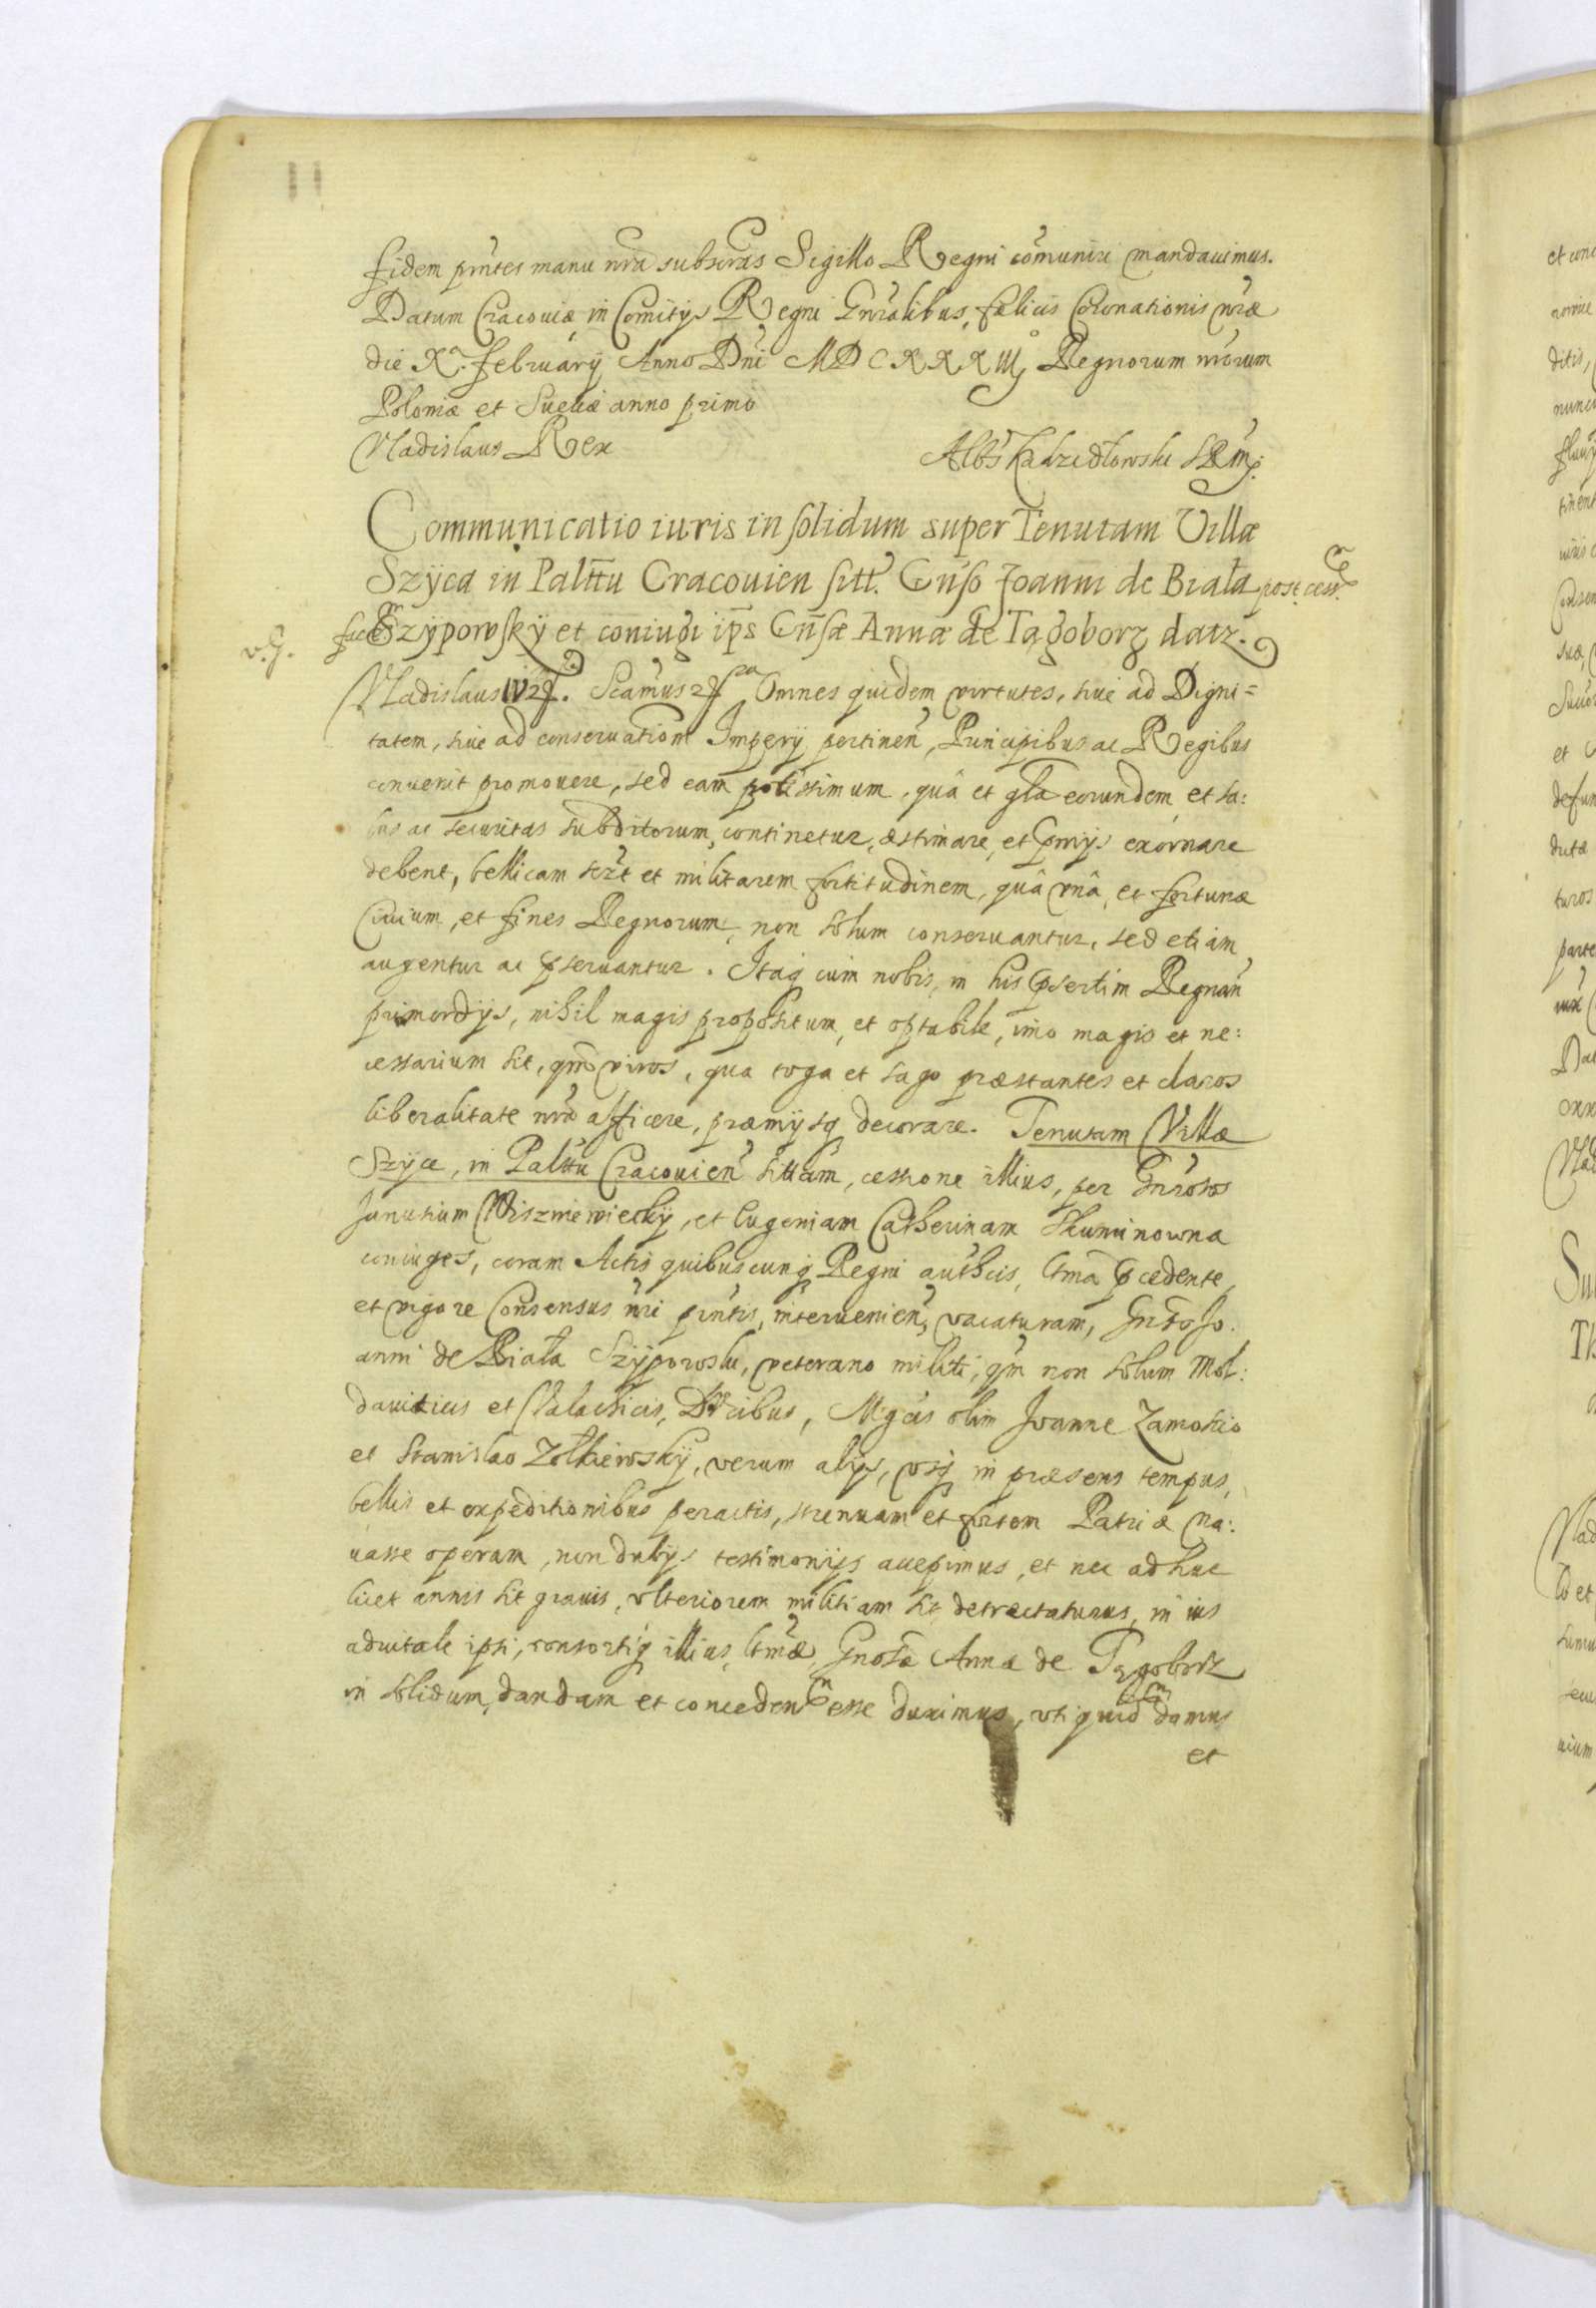 11
fidem pñtes manu nrã subscrãs Sigillo Regni cõmuniri mandauimus.
Datum Cracouiæ in Comitijs Regni Gñralibus, fælicis Coronationis nræ
die Xª. februarÿ Anno Dñi MDCXXXIIIº Regnorum nrõrum
Poloniæ et Sueciæ anno primo
Vladislaus Rex
Albs Kadzidłowski
Communicatio iuris in solidum super Tenutam Villæ
Szÿca in Palttu Cracouien sitt. Gnso Joanni de Biała post cess.
Szÿpowskÿ et coniugi ips Gnsæ Annæ de Tągoborz datz.
v. g.
Vladislaus IV Omnes quidem virtutes, siue ad Digni=
tatem, siue ad conseruationẽ Imperÿ pertineñ, Principibus ac Regibus
conuenit promouere, sed eam potissimum, quâ et glã eorundem et sa:
lus ac securitas subditorum, continetur, æstimare, et pmijs exornare
debent, bellicam scẽt et militarem fortitudinem, quâ vnâ, et fortunæ
Ciuium, et fines Regnorum, non solum conseruantur, sed etiam
augentur ac pseruantur. Itaq cum nobis, in his psertim Regnañ
primordijs, nihil magis propositum, et optabile, imo magis et ne:
cessarium sit, qm viros, qua toga et sago præstantes et claros
liberalitate nrã afficere, præmÿsq decorare. Tenutam Villæ
Szÿce, in Palttu Cracouieñ sittam, cessione illius, per Gñrosos
Janutium Wiszniewieckÿ, et Eugeniam Catherinam Skuminowna
coniuges, coram Actis quibuscunq Regni authcis, ltmã pcedente,
et vigore Consensus nri pñtis, interuenieñ, vacaturam, Gnrõso Jo:
anni de Biała Szÿpowski, veterano militi, qm non solum Mol:
dauiticis et Valachicis, Ducibus, Mgcis olim Joanne Zamoscio
et Stanislao Zołkiewskÿ, verum alijs, vsq in præsens tempus,
bellis et expeditionibus peractis, strenuam et fortem Patriæ na:
uasse operam, non dubijs testimonijs accepimus, et nec adhuc
licet annis sit grauis, vlteriorem militiam sit detrectaturus, in ius
aduitale ipsi, consortiq illius, ltmæ, Gnosæ Annæ de Tągoborz
in solidum, dandam et conceden esse duximus, vti quid damus
et